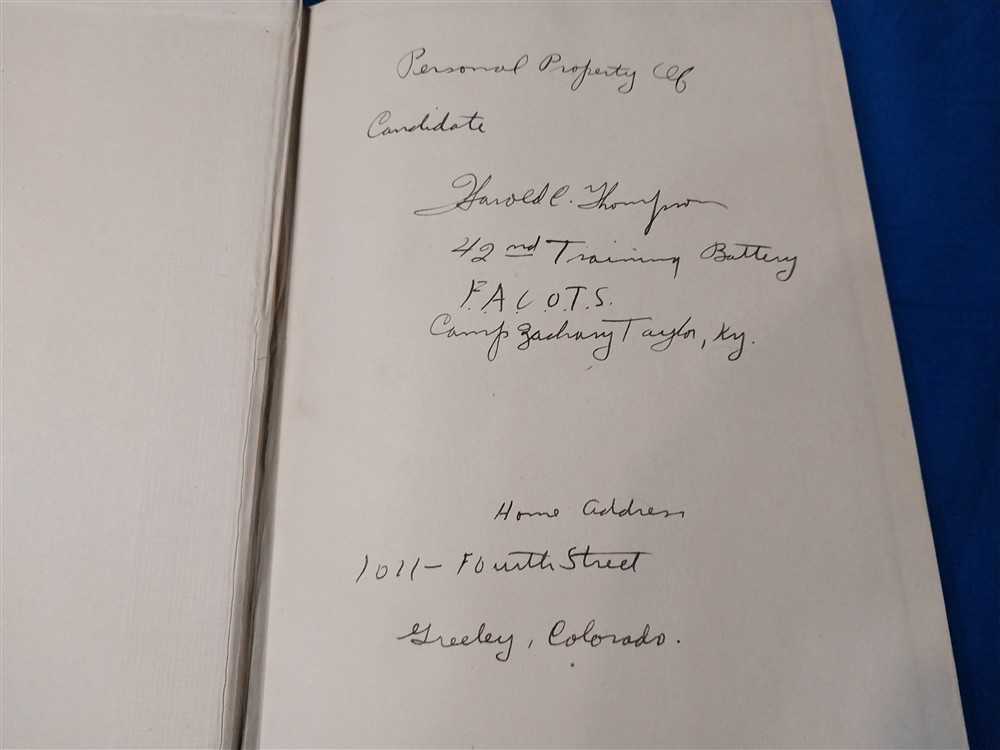 Personal Property Of
Candidate
Harold C. Thompson
42nd Training Battery
F.A.C.O.T.S.
Camp Zachary Taylor, Ky.
Home Address
1011- Fourth Street
Greeley, Colorado.